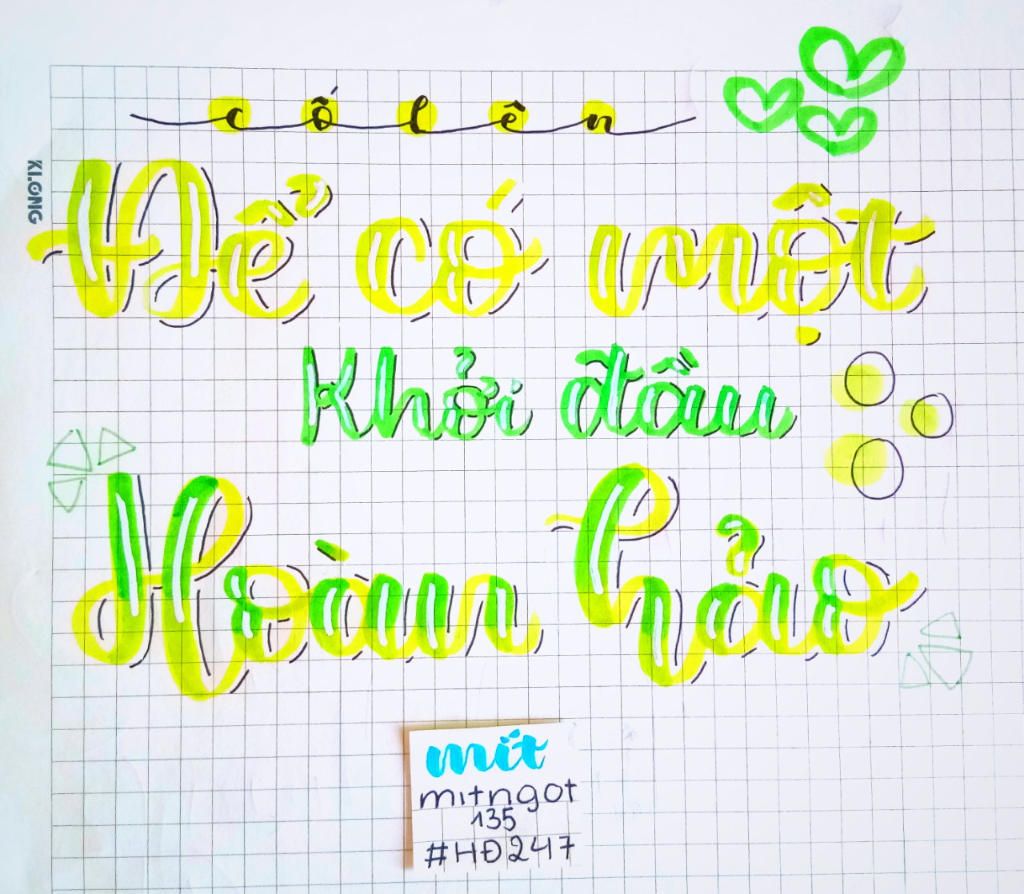 cố lên
KLONG
Để có một
Khởi đầu
Hoàn hảo
mít
mitngot
135
#HĐ247